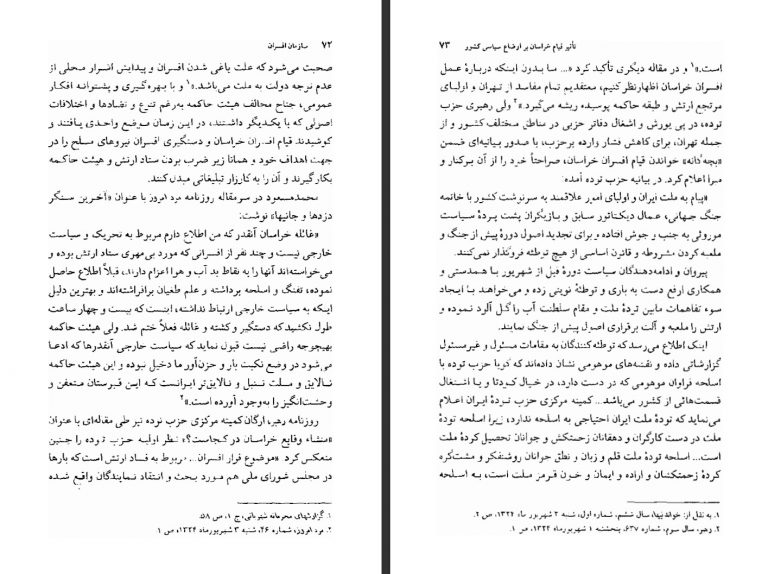 ۷۲ سازمان افسران
صحبت می‌شود که علت یاغی شدن افسران و پیدایش اشرار محلی از
عدم توجه دولت به ملت می‌باشد.»۱ و با بهره‌گیری و پشتوانه افکار
عمومی، جناح مخالف هیئت حاکمه به‌رغم تنوع و تضادها و اختلافات
اصولی که با یکدیگر داشتند، در این زمان موضع واحدی یافتند و
کوشیدند. قیام افسران خراسان و دستگیری افسران نیروهای مسلح را در
جهت اهداف خود و همانا زیر ضرب بردن ستاد ارتش و هیئت حاکمه
بکار گیرند و آن را به کارزار تبلیغاتی مبدل کنند.
محمدمسعود در سرمقاله روزنامه مرد امروز با عنوان «آخرین سنگر
دزدها و جانیها» نوشت:
«غائله خراسان آنقدر که من اطلاع دارم مربوط به تحریک و سیاست
خارجی نیست و چند نفر از افسرانی که مورد بی‌مهری ستاد ارتش بوده و
می‌خواسته‌اند آنها را به نقاط بد آب و هوا اعزام دارند، قبلاً اطلاع حاصل
نموده، تفنگ و اسلحه برداشته و علم طغیان برافراشته‌اند و بهترین دلیل
اینکه به سیاست خارجی ارتباط نداشته، اینست که بیست و چهار ساعت
طول نکشید که دستگیر و کشته و غائله فعلاً ختم شد. ولی هیئت حاکمه
بهیچوجه راضی نیست قبول نماید که سیاست خارجی آنقدرها که ادعا
می‌شود در وضع نکبت بار و حزن‌آور ما دخیل نبوده و این هیئت حاکمه
نالایق و ملت تنبل و نالایق‌تر ایرانست که این قبرستان متعفن و
وحشت‌انگیز را به‌وجود آورده است.»۲
روزنامه رهبر، ارگان کمیته مرکزی حزب توده نیز طی مقاله‌ای با عنوان
«منشاء وقایع خراسان در کجاست؟» نظر اولیه حزب توده را چنین
منعکس کرد: «موضوع فرار افسران... مربوط به فساد ارتش است که بارها
در مجلس شورای ملی هم مورد بحث و انتقاد نمایندگان واقع شده
۱. گزارشهای محرمانه شهربانی، ج ۱، ص ۵۸.
۲. مرد امروز، شماره ۴۶، شنبه ۳ شهریورماه ۱۳۲۴، ص ۱
تأثیر قیام خراسان بر اوضاع سیاسی کشور ۷۳
است.»۱ و در مقاله دیگری تأکید کرد «... ما بدون اینکه دربارهٔ عمل
افسران خراسان اظهارنظر کنیم، معتقدیم تمام مفاسد از تهران و اولیای
مرتجع ارتش و طبقه حاکمه پوسیده ریشه می‌گیرد»۲ ولی رهبری حزب
توده، در پی یورش و اشغال دفاتر حزبی در مناطق مختلف کشور و از
جمله تهران، برای کاهش فشار وارده برحزب، با صدور بیانیه‌ای ضمن
«بچه‌گانه» خواندن قیام افسران خراسان، صراحتاً خود را از آن برکنار و
مبرا اعلام کرد. در بیانیه حزب توده آمده:
«پیام به ملت ایران و اولیای امور علاقمند به سرنوشت کشور با خاتمه
جنگ جهانی، عمال دیکتاتور سابق و بازیگران پشت پردهٔ سیاست
موروثی به جنب و جوش افتاده و برای تجدید اصول دورهٔ پیش از جنگ و
ملعبه کردن مشروطه و قانون اساسی از هیچ توطئه فروگذار نمی‌کنند.
پیروان و ادامه‌دهندگان سیاست دورهٔ قبل از شهریور با همدستی و
همکاری ارفع دست به بازی و توطئهٔ نوینی زده و می‌خواهد با ایجاد
سوء تفاهمات مابین تودهٔ ملت و مقام سلطنت آب را گل آلود نموده و
ارتش را ملعبه و آلت برقراری اصول پیش از جنگ نمایند.
اینک اطلاع می‌رسد که توطئه کنندگان به مقامات مسئول و غیرمسئول
گزارشاتی داده و نقشه‌های موهومی نشان داده‌اند که گویا حزب توده با
اسلحه فراوان موهومی که در دست دارد، در خیال کودتا و یا اشغال
قسمت‌هائی از کشور می‌باشد... کمیته مرکزی حزب تودهٔ ایران اعلام
می‌نماید که تودهٔ ملت ایران احتیاجی به اسلحه ندارد، زیرا اسلحه تودهٔ
ملت در دست کارگران و دهقانان زحمتکش و جوانان تحصیل کردهٔ ملت
است. اسلحه تودهٔ ملت قلم و زبان و نطق جوانان روشنفکر و مشت گره
کردهٔ زحمتکشان و اراده و ایمان و خون قرمز ملت است، به اسلحه
۱. به نقل از: خواندنیها، سال ششم، شماره اول، شنبه ۳ شهریور ماه ۱۳۲۴، ص ۲.
۲. رهبر، سال سوم، شماره ۶۳۷، پنجشنبه ۱ شهریورماه ۱۳۲۴، ص ۱.